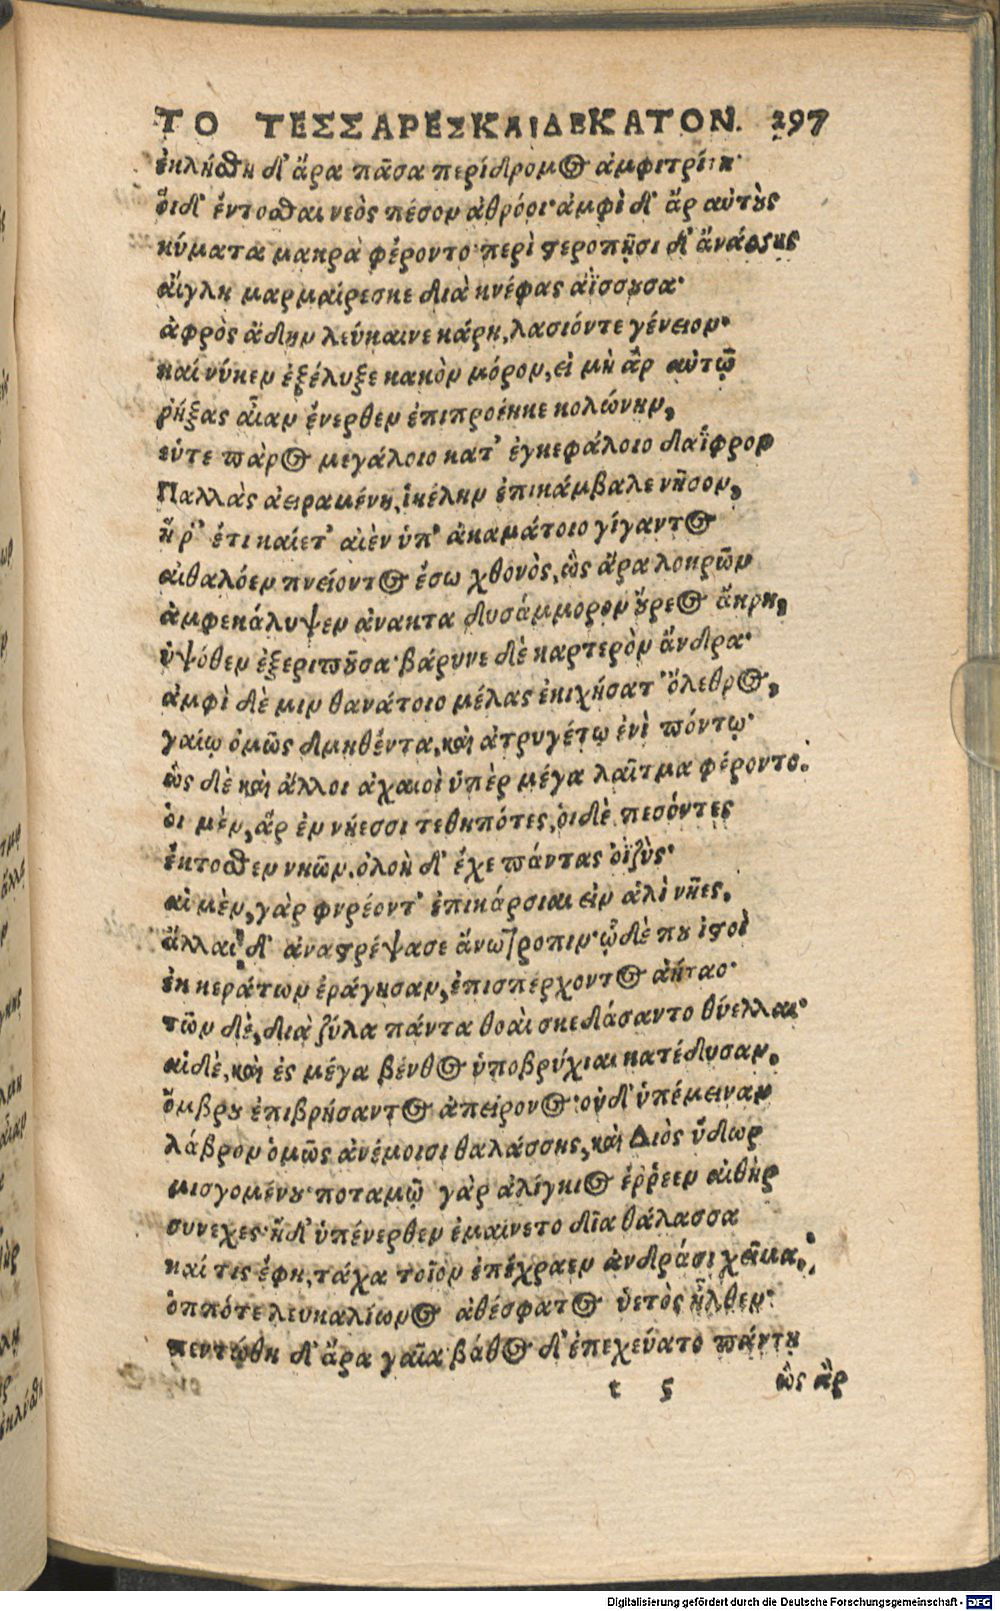 ΤΟ ΤΕΣΣΑΡΕΣΚΑΙΔΕΚΑΤΟΝ. 297
ἐκλύσθη δ' ἄρα πᾶσα περίδρομος ἀμφιτρίτη·
οἱ δ' ἔντοσθαι νεὸς πέσον ἀθρόοι· ἀμφὶ δ' ἄρ αὐτοὺς
κύματα μακρὰ φέροντο· περὶ στεροπῇσι δ' ἀνάσσης
αἴγλη μαρμαίρεσκε διὰ κνέφας ἀΐσσουσα·
ἀφρὸς ἄδην λεύκαινε κάρη, λασιόν τε γένειον·
καί νύ κεν ἐξέλυξε κακὸν μόρον, εἰ μὴ ἂρ αὐτῷ
ῥήξας αἶαν ἔνερθεν ἐπιπροέηκε κολώνην,
εὖτε πάρος μεγάλοιο κατ' ἐγκεφάλοιο δαΐφρον
Παλλὰς ἀειραμένη, ἰκέλην ἐπικάμβαλε νῆσον,
ἥ ῥ' ἔτι καίετ' αἰὲν ὑπ' ἀκαμάτοιο γίγαντος
αἰθαλόεν πνείοντος ἔσω χθονὸς, ὣς ἄρα λοκρῶν
ἀμφεκάλυψεν ἄνακτα δυσάμμορον οὔρεος ἄκρη,
ὑψόθεν ἐξεριποῦσα· βάρυνε δὲ καρτερὸν ἄνδρα·
ἀμφὶ δέ μιν θανάτοιο μέλας ἐκιχήσατ' ὄλεθρος,
γαίῳ ὁμῶς δμηθέντα, καὶ ἀτρυγέτῳ ἐνὶ πόντῳ·
ὣς δὲ καὶ ἄλλοι ἀχαιοὶ ὑπὲρ μέγα λαῖτμα φέροντο·
οἱ μὲν, ἂρ ἐν νήεσσι τεθηπότες, οἱ δὲ πεσόντες
ἔκτοσθεν νηῶν. ὀλοὴ δ' ἔχε πάντας ὀϊζὺς·
αἱ μὲν, γὰρ φνρέοντ' ἐπικάρσιαι εἰν ἁλὶ νῆες.
ἄλλαι δ' ἀναστρέψασε ἄνω τροπιν· ᾧ δέ που ἱστοὶ
ἐκ κεράτων ἐράγησαν, ἐπισπέρχοντος ἀήταο·
τῶν δὲ, διὰ ξύλα πάντα θοαὶ σκεδάσαντο θύελλαι·
αἱ δὲ, καὶ ἐς μέγα βένθος ὑποβρύχιαι κατέδυσαν.
ὄμβρου ἐπιβρήσαντος ἀπείρονος· οὐδ' ὑπέμειναν
λάβρον ὁμῶς ἀνέμοισι θαλάσσης, καὶ Διὸς ὕδωρ
μισγομένου· ποταμῷ γὰρ ἀλίγκιος ἔρρεεν αἰθὴρ
συνεχες· ἡ δ' ὑπένερθεν ἐμαίνετο δῖα θάλασσα
καί τις ἔφη, τάχα τοῖον ἐπέχραεν ἀνδράσι χεῖμα,
ὁππότε λευκαλίωνος ἀθέσφατος ὑετὸς ἦλθεν·
πεντώθη δ' ἄρα γαῖα· βάθος δ' ἐπεχεύατο πάντη
t 5 ὣς ἂρ